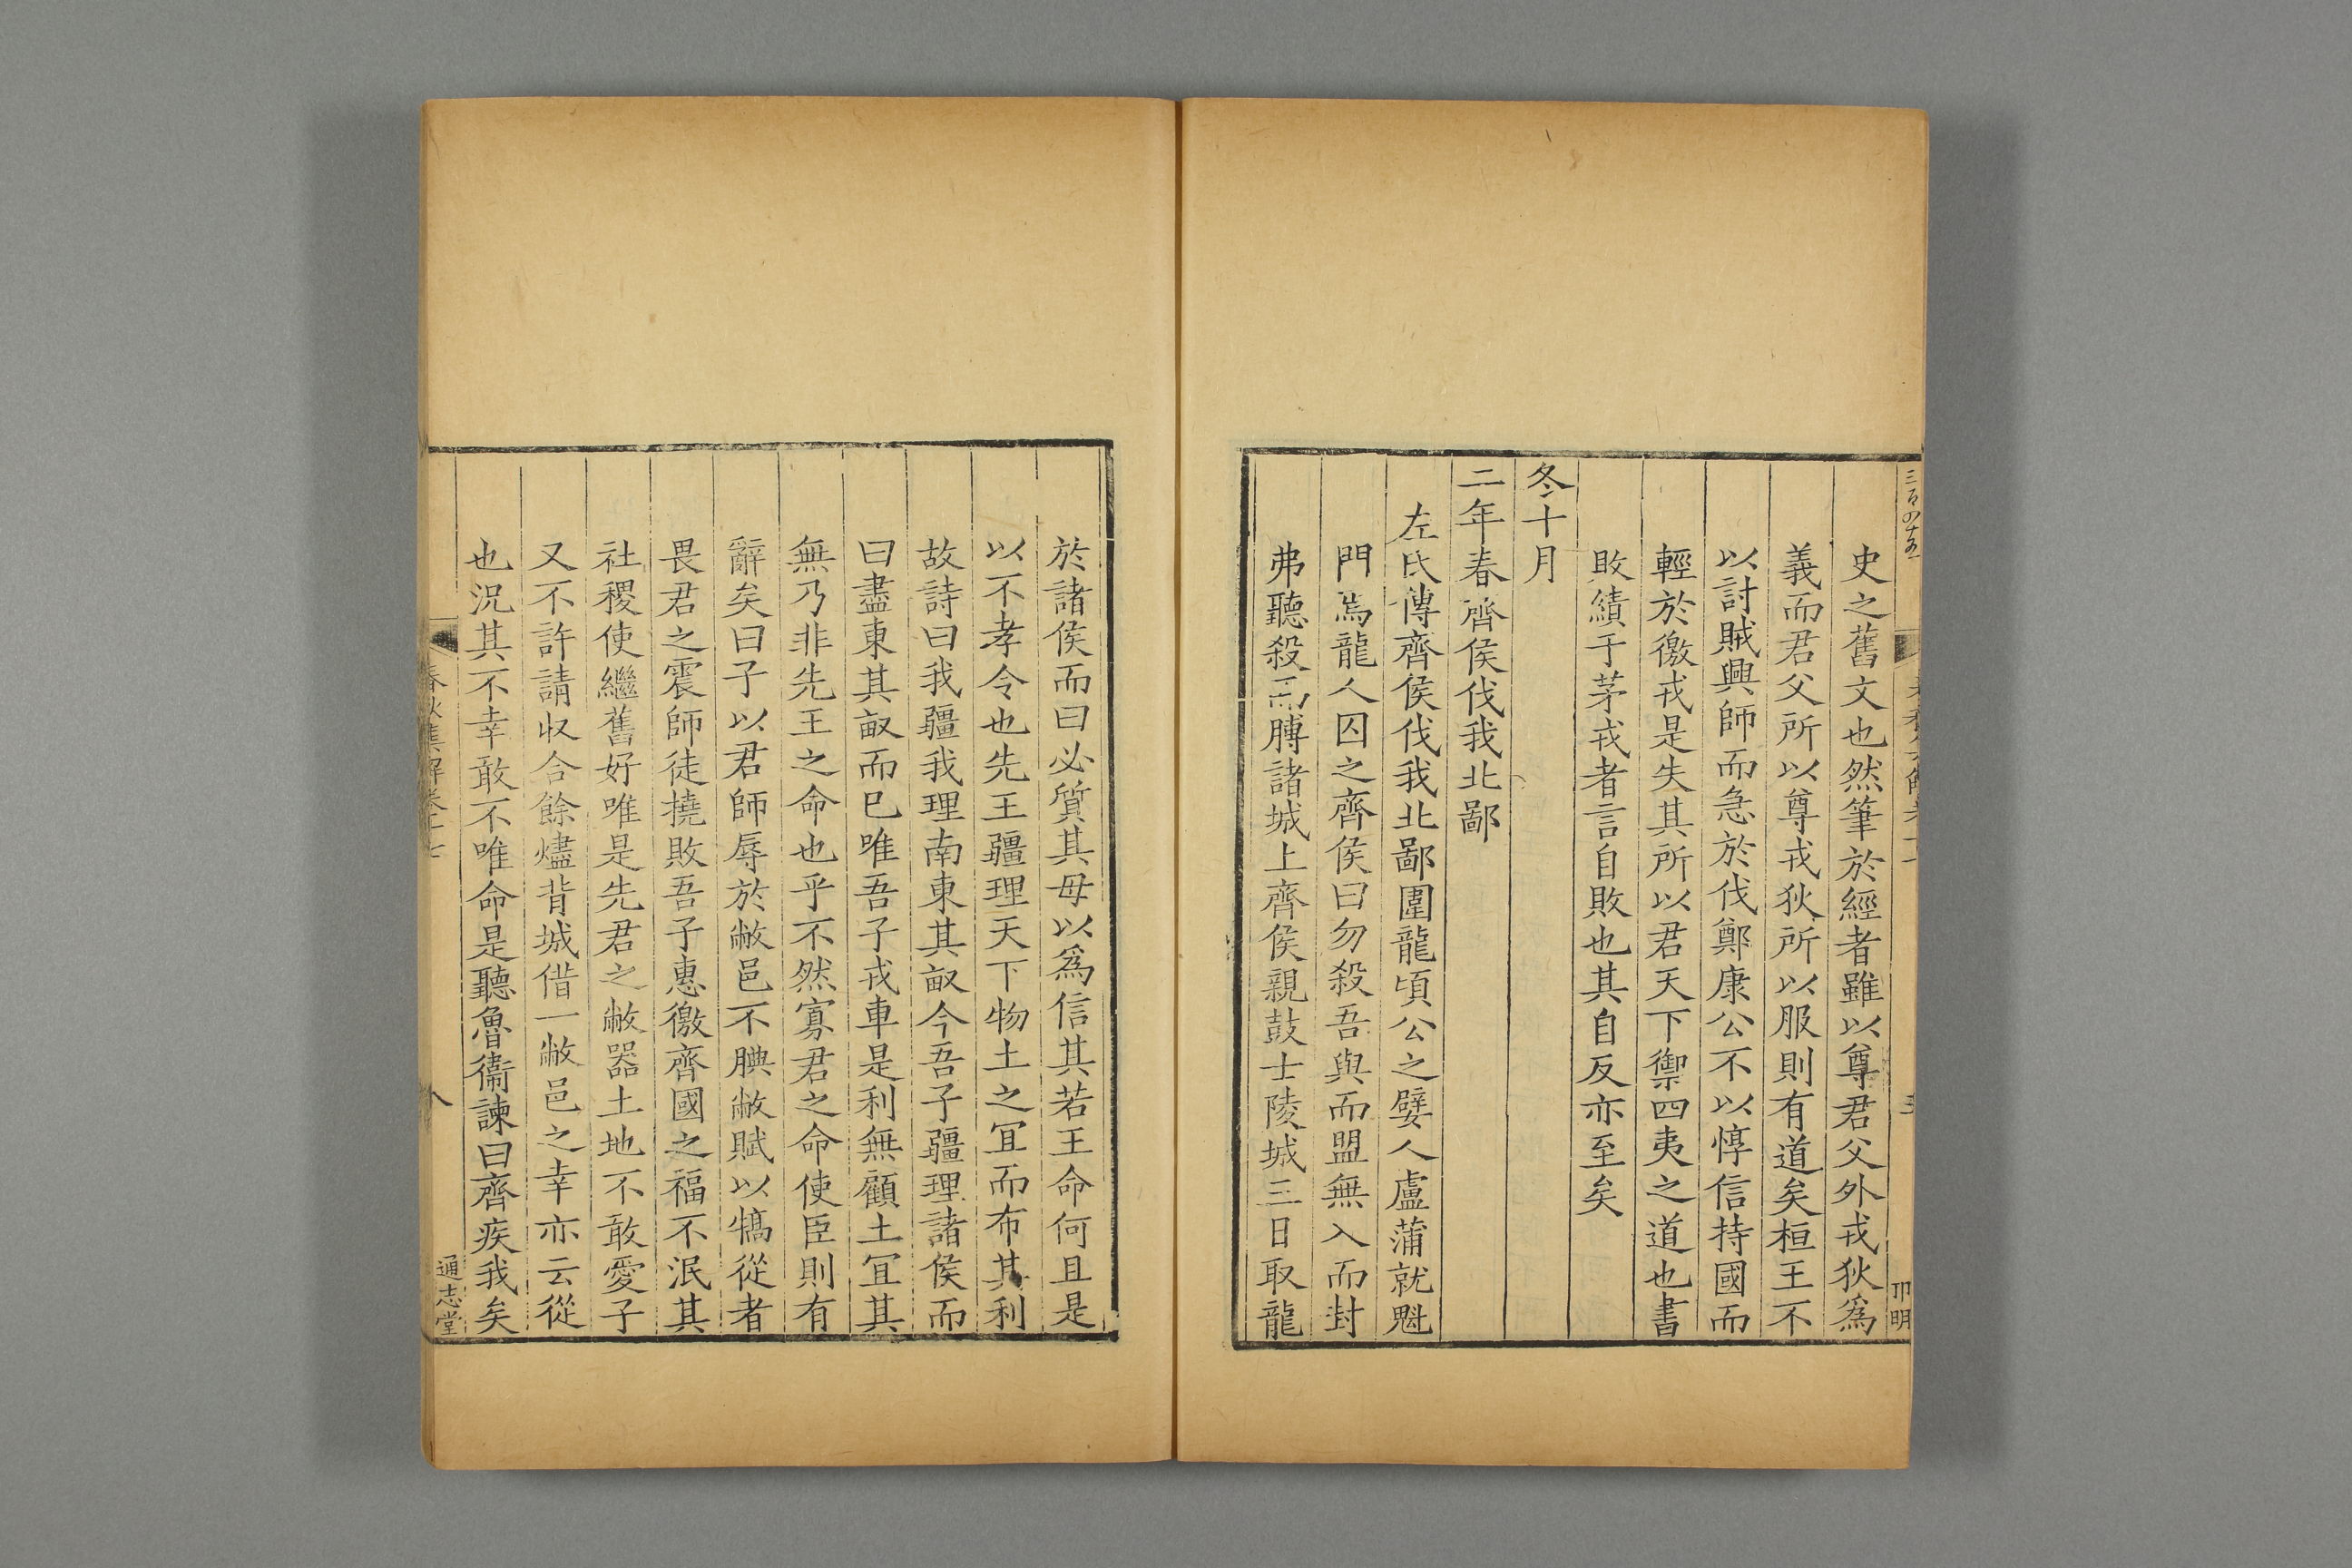 三百四十五
史之舊文也然筆於經者雖以尊君父外戎狄爲
義而君父所以尊戎狄所以服則有道矣桓王不
以討賊興師而急於伐鄭康公不以惇信持國而
輕於徼戎是失其所以君天下禦四夷之道也書
敗績于茅戎者言自敗也其自反亦至矣
冬十月
二年春齊侯伐我北鄙
左氏傳齊侯伐我北鄙圍龍頃公之嬖人盧蒲就魁
門焉龍人囚之齊侯曰勿殺吾與而盟無入而封
弗聽殺而膊諸城上齊侯親鼓士陵城三日取龍
於諸侯而曰必質其母以爲信其若王命何且是
以不孝令也先王疆理天下物土之冝而布其利
故詩曰我疆我理南東其畝今吾子疆理諸侯而
曰盡東其畝而已唯吾子戎車是利無顧土冝其
無乃非先王之命也乎不然寡君之命使臣則有
辭矣曰子以君師辱於敝邑不腆敝賦以犒從者
畏君之震師徒撓敗吾子惠徼齊國之福不泯其
社稷使繼舊好唯是先君之敝器土地不敢愛子
又不許請收合餘燼背城借一敝邑之幸亦云從
也況其不幸敢不唯命是聽魯衞諫曰齊疾我矣
春秋集解卷十七
八
通志堂